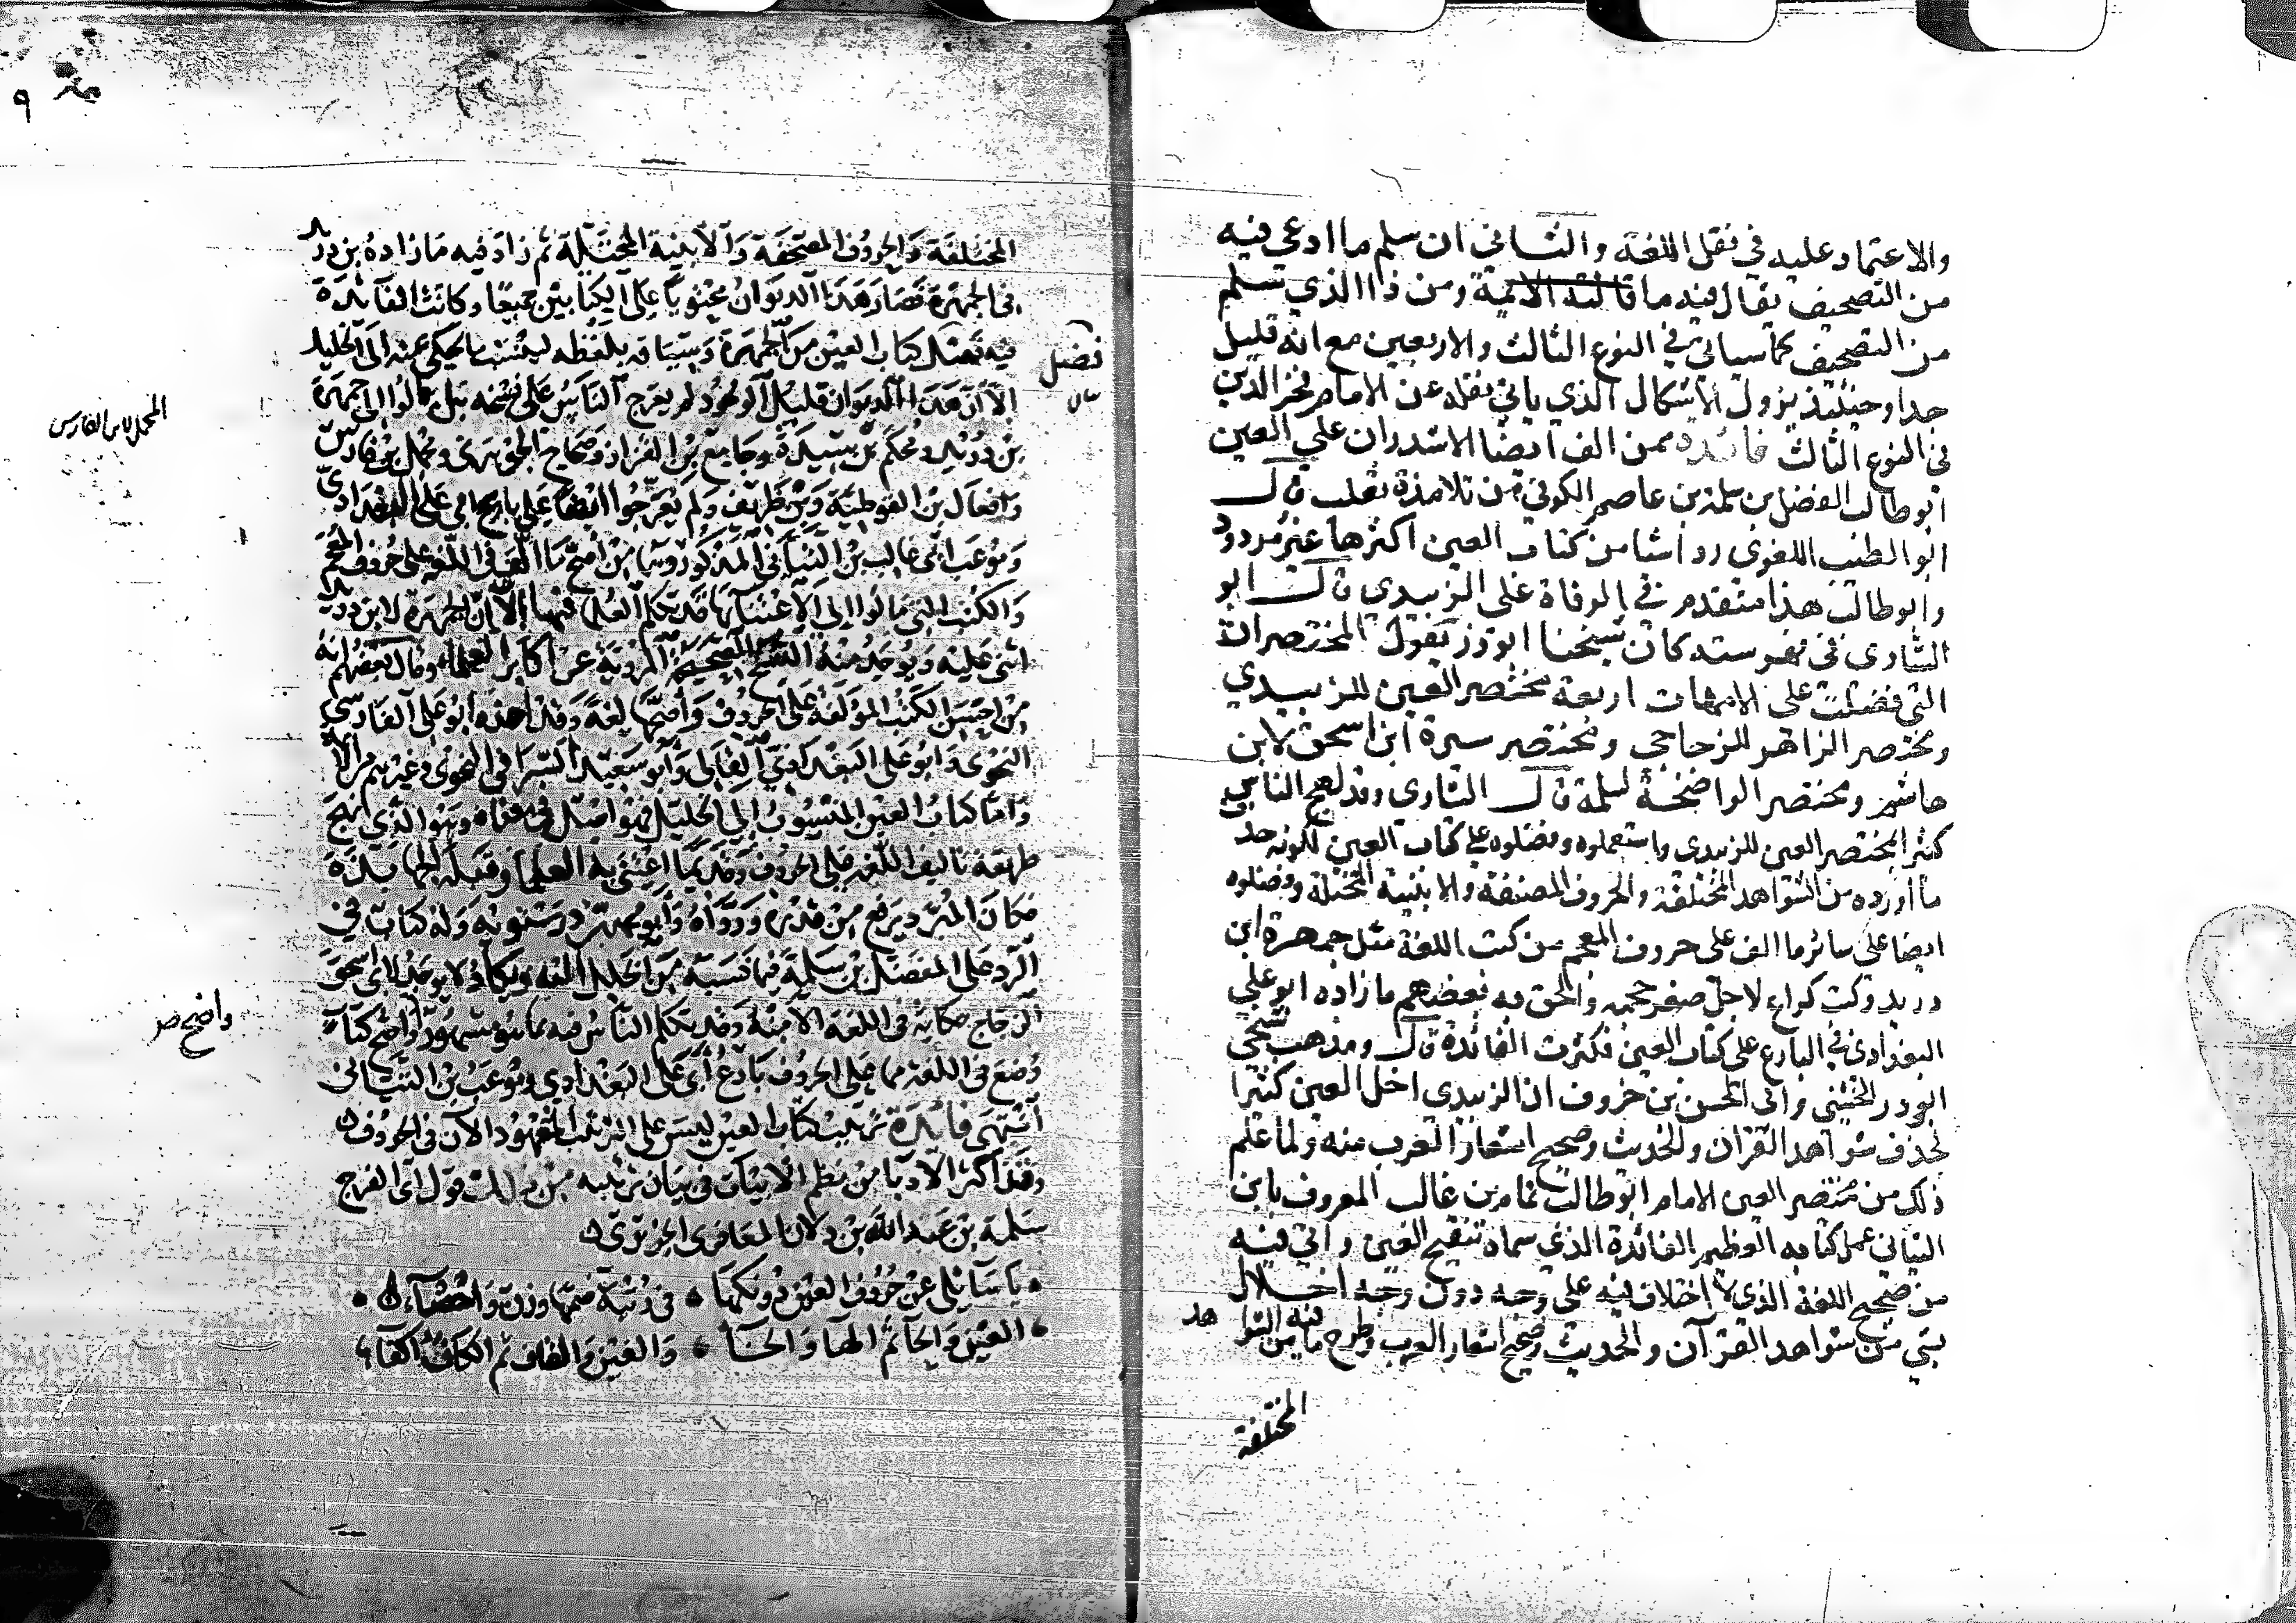 والاعتماد عليه في نقل اللغة والثاني ان سلم ما ادعي فيه
من التصحيف يقال فيه ما قالته الائمة ومن ذا الذي سلم
من التصحيف كما سياتي في النوع الثالث والاربعين مع انه قليل
جدا وحينئذ يزول الاشكال الذي ياتي نقله عن الامام فخر الدين
في النوع الثالث فائدة ممن الف ايضا الاستدراك علي العين
ابو طالب المفضل بن سلمة بن عاصم الكوفي من تلامذة ثعلب قال
ابو الطيب اللغوي رد اشيا من كتاب العين اكثرها غير مردود
وابو طالب هذا متقدم في الوفاة علي الزبيدي قال ابو
الشاري في فهرسته كان شيخنا ابو ذر يقول المختصرات
التي فضلت على الامهات اربعة مختصر العين للزبيدي
ومختصر الزاهر للزجاجي ومختصر سيرة ابن اسحق لابن
هاشم ومختصر الواضحة لسلمة قال الشاري وقد لهج الناس
كثيرا بمختصر العين للزبيدي واستعملوه وفضلوه على كتاب العين لكونه حذف
ما اورده من الشواهد المختلفة والحروف المصنفة والابنية المختلة وفضلوه
ايضا على سائر ما الف على حروف المعجم من كتب اللغة مثل جمهرة ابن
دريد وكتب كراع لاجل صغر حجمه والحق به بعضهم ما زاده ابو علي
البغدادي في البارع على كتاب العين فكثرت الفائدة قال ومذهب شيخي
ابو ذر الخشني وابي الحسن بن خروف ان الزبيدي اخل العين كثيرا
لحذف شواهد القران والحديث وصحيح اشعار العرب منه ولما علم
ذلك من مختصر العين الامام ابو طالب تمام بن غالب المعروف بابن
التياني عمل كتابه العظيم الفائدة الذي سماه تنقيح العين واتي فيه
من صحيح اللغة الذي لا اختلاف فيه على وجه دون وجه اخلال
بشي من شواهد القرآن والحديث وصحيح اشعار العرب وطرح ما فيه من الشوا
هد
المختلفة
مجمل ٩
المختلفة والحروف المصحفة والابنية المختلة ثم زاد فيه ما زاده بن دريد
في الجمهرة فصار هذا الديوان محتويا على الكتابين جميعا وكانت الفائدة
فيه فصل كتاب العين من الجمهرة وسياقه بلفظه لينسب ما يحكي عنه الى الخليل
فصل
الا ان هذا الديوان قليل الوجود لم يعرج الناس على نسخه بل مالوا الى جمهرة
بن دريد ومحكم بن سيدة وجامع بن القزاز وصحاح الجوهري ومجمل بن فارس
المجمل لابن الفارس
وافعال بن القوطية وبن طريف ولم يعرجوا ايضا على بارع ابي علي البغدادي
وموعب ابي غالب بن التياني المذكور وهما من اصح ما الف في اللغة على حروف المعجم
والكتب التي مالوا الى الاعتنا بها قد تكلم العلما فيها الا ان الجمهرة لابن دريد
اثني عليه ويوجد منه النسخ الصحيحة المروية عن اكابر العلماء وقال بعضهم انه
من احسن الكتب المؤلفة على الحروف واصحها لغة وقد اخذه ابو علي الفارسي
النحوي وابو علي البغدادي القالي وابو سعيد السيرافي النحوي وغيرهم من الائمة
واما كتاب العين المنسوب الى الخليل فهو اصل في معناه وهو الذي نهج
طريقة تاليف اللغة على الحروف وقديما اعتنى به العلما وقبله الجهابذة
فكان المبرد يرفع من قدره ورواه وابو محمد بن درستويه وله كتاب في
الرد على المفضل بن سلمة فيما نسبه من الخلل اليه ويكاد لا يوجد لابي اسحق
الزجاج حكاية في اللغة الا منه وقد تكلم الناس فيه بما هو مشهور واصح كتاب
واضح صر
وضع في اللغة مما على الحروف بارع ابي علي البغدادي وموعب بن التياني
انتهي فائدة ترتيب كتاب العين ليس على الترتيب المعهود الآن في الحروف
وقد اكثر الادبا من نظم الابيات في بيان ترتيبه من ذلك قول ابي الفرج
سلمة بن عبد الله بن دلان المعافري الجزيري
يا سائلي عن حروف العين دونكها * في رتبة ضمها وزن واحصاء
العين والحا ثم الها والخا * والغين والقاف ثم الكاف اكفاء